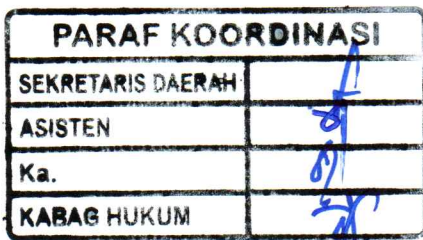 PARAF KOORDINASI
SEKRETARIS DAERAH
ASISTEN
Ka.
KABAG HUKUM